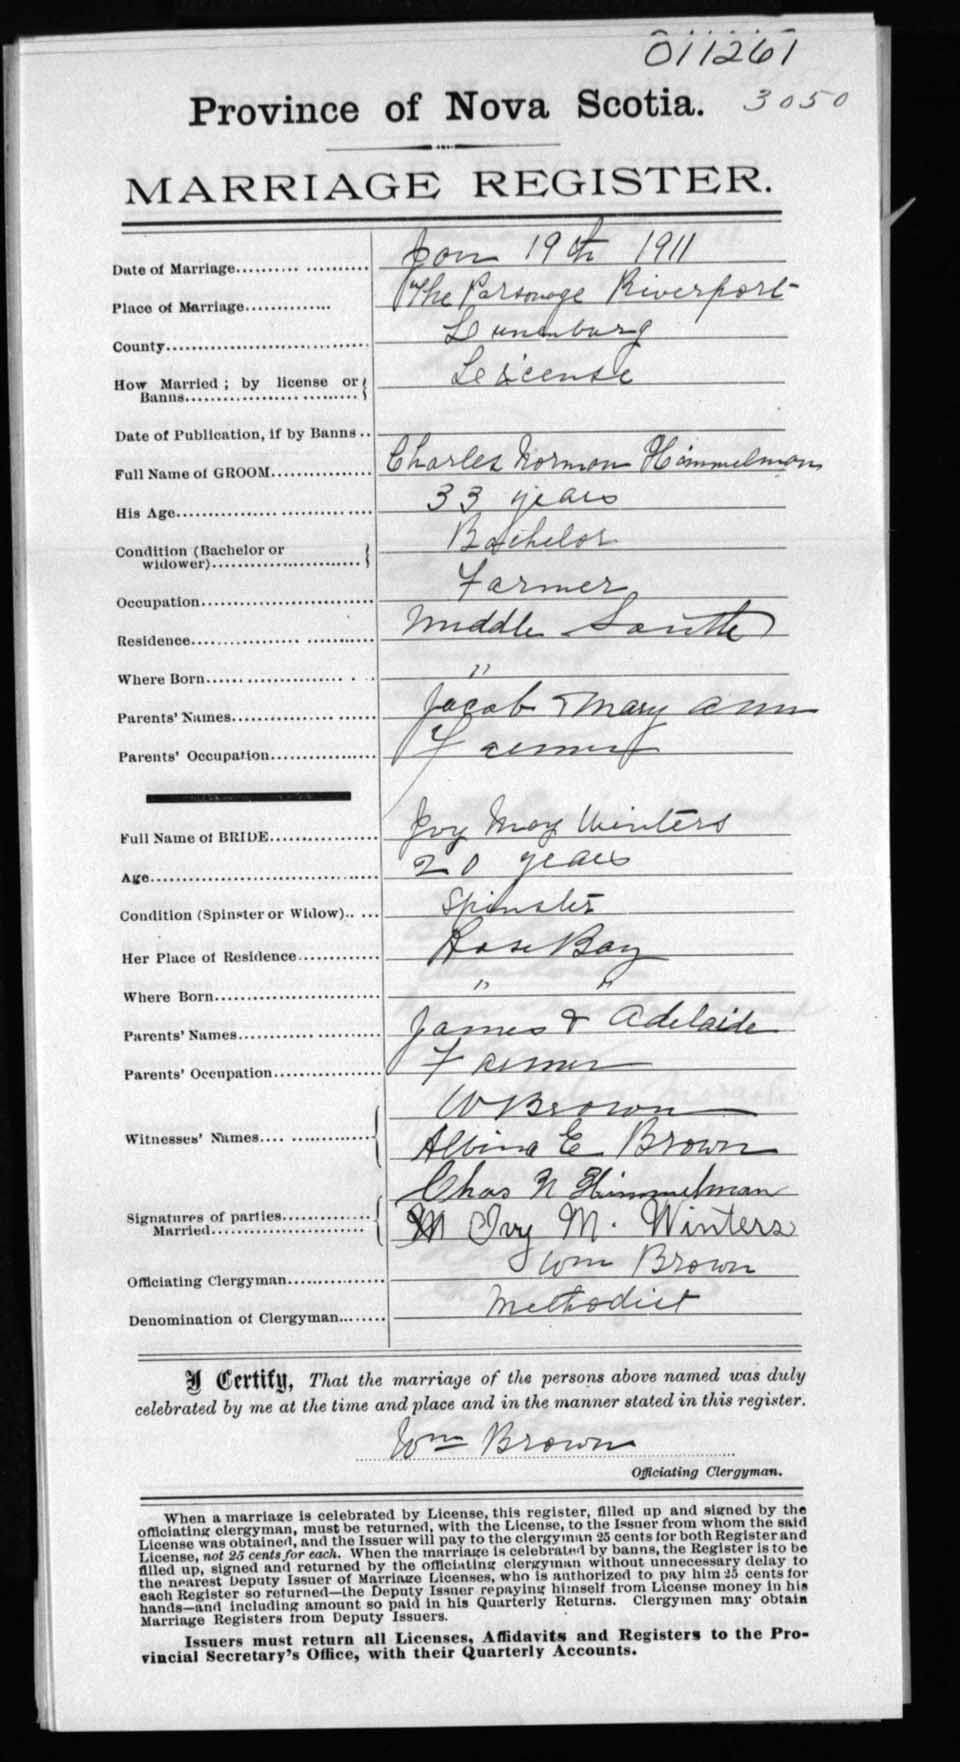 011261
Province of Nova Scotia. 3050
MARRIAGE REGISTER.
Date of Marriage.......... ........... Jan 19th 1911
Place of Marriage............. The Parsonage Riverport
County................................ Lunenburg
How Married ; by license or Banns.................. .......... Leicense
Date of Publication, if by Banns ..
Full Name of GROOM............... Charles Norman Himmelman
His Age.................. .............. 33 years
Condition (Bachelor or widower).......................... Bachelor
Occupation............................ Farmer
Residence.................. ........... Middle South
Where Born.................... . . "
Parents' Names.................. ....... Jacob & Mary Ann
Parents' Occupation................. Farmer
Full Name of BRIDE................ Ivy May Winters
Age.................................... 20 years
Condition (Spinster or Widow).. ... Spinster
Her Place of Residence............. Rose Bay
Where Born.......................... " "
Parents' Names....................... James & Adelaide
Parents' Occupation................. Farmer
Witnesses' Names.... ............... W Brown
Albina E Brown
Signatures of parties............... Married....................... Chas N Himmelman
Ivy M. Winters
Officiating Clergyman................ Wm Brown
Denomination of Clergyman........ Methodist
I Certify, That the marriage of the persons above named was duly
celebrated by me at the time and place and in the manner stated in this register.
Wm Brown
Officiating Clergyman.
When a marriage is celebrated by License, this register, filled up and signed by the
officiating clergyman, must be returned, with the License, to the Issuer from whom the said
License was obtained, and the Issuer will pay to the clergyman 25 cents for both Register and
License, not 25 cents for each. When the marriage is celebrated by banns, the Register is to be
filled up, signed and returned by the officiating clergyman without unnecessary delay to
the nearest Deputy Issuer of Marriage Licenses, who is authorized to pay him 25 cents for
each Register so returned—the Deputy Issuer repaying himself from License money in his
hands—and including amount so paid in his Quarterly Returns. Clergymen may obtain
Marriage Registers from Deputy Issuers.
Issuers must return all Licenses, Affidavits and Registers to the Pro-
vincial Secretary's Office, with their Quarterly Accounts.